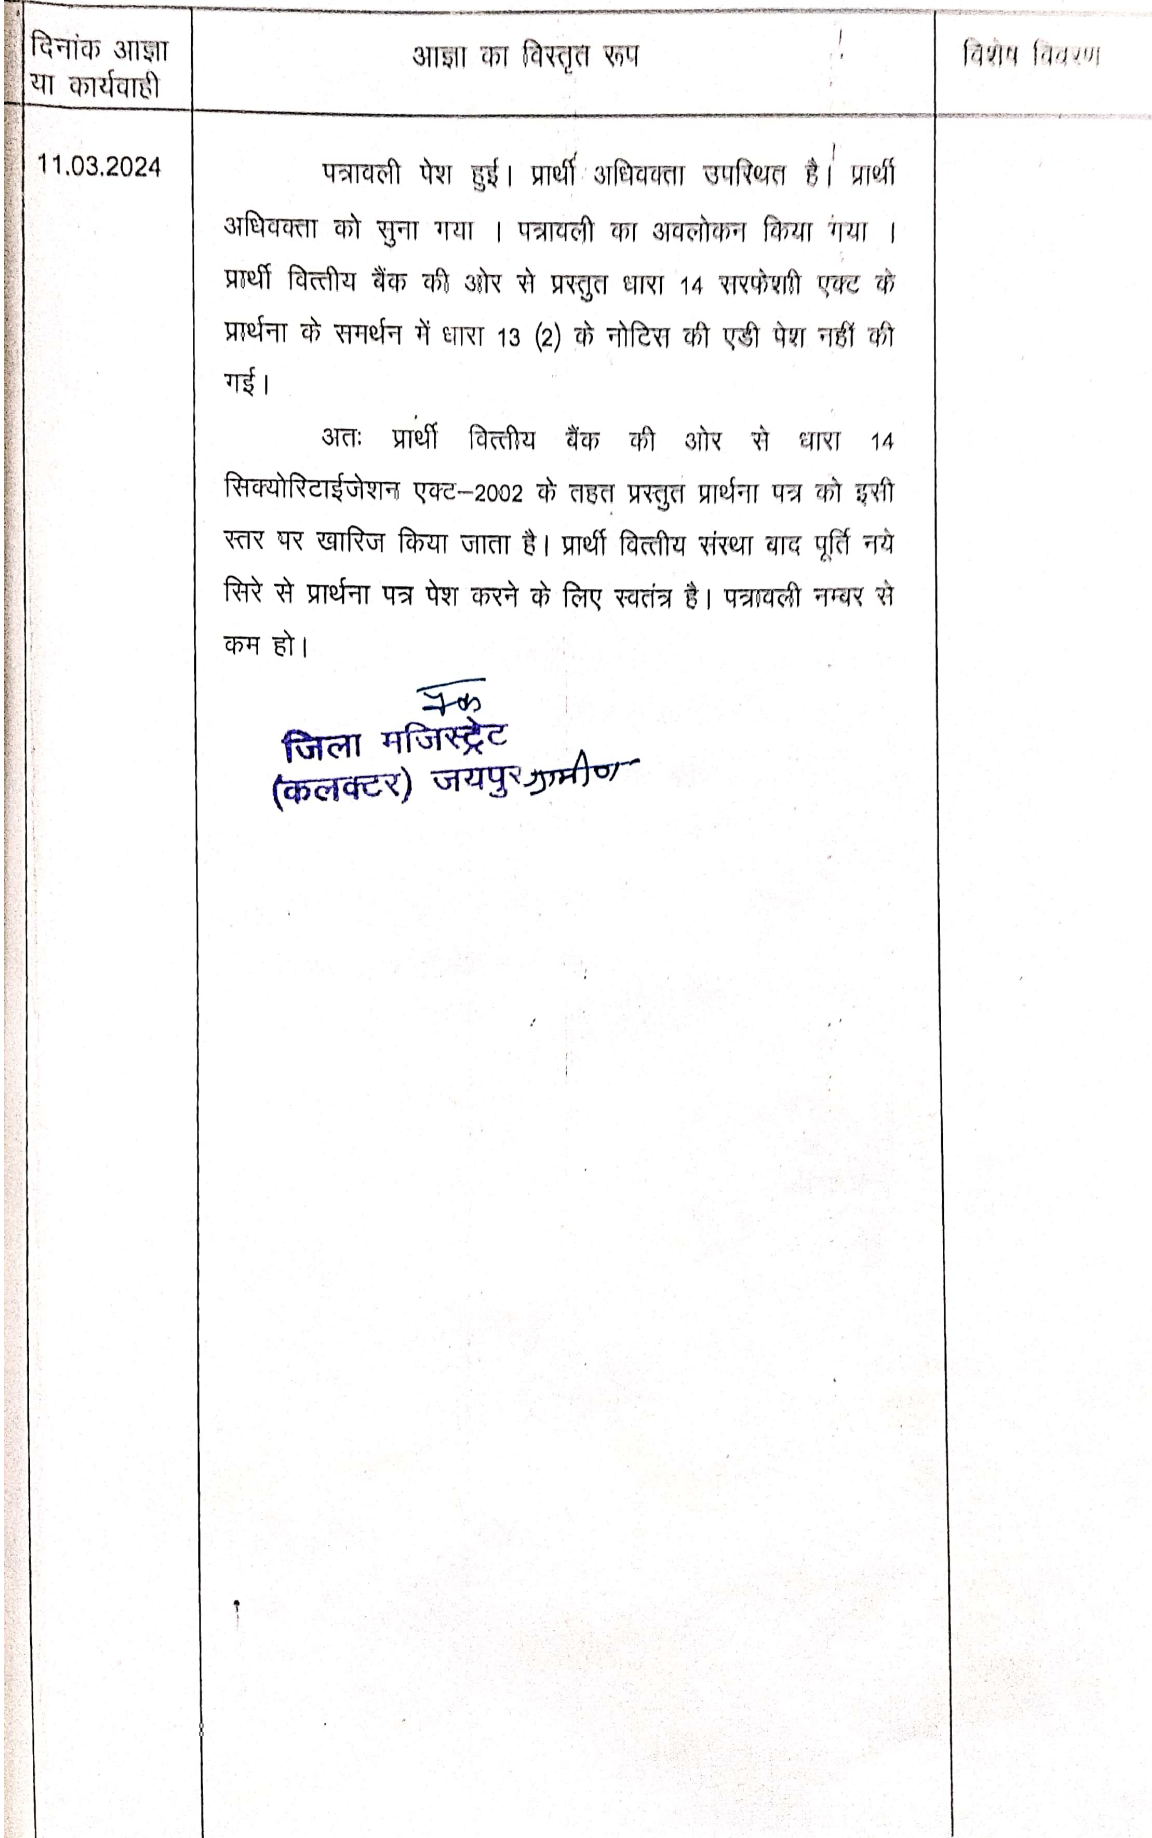 दिनांक आज्ञा
या कार्यवाही
आज्ञा का विस्तृत रूप
विशेष विवरण
11.03.2024
पत्रावली पेश हुई। प्रार्थी अधिवक्ता उपस्थित है। प्रार्थी
अधिवक्ता को सुना गया । पत्रावली का अवलोकन किया गया ।
प्रार्थी वित्तीय बैंक की ओर से प्रस्तुत धारा 14 सरफेशी एक्ट के
प्रार्थना के समर्थन में धारा 13 (2) के नोटिस की एडी पेश नहीं की
गई।
अतः प्रार्थी वित्तीय बैंक की ओर से धारा 14
सिक्योरिटाईजेशन एक्ट–2002 के तहत प्रस्तुत प्रार्थना पत्र को इसी
स्तर पर खारिज किया जाता है। प्रार्थी वित्तीय संस्था बाद पूर्ति नये
सिरे से प्रार्थना पत्र पेश करने के लिए स्वतंत्र है। पत्रावली नम्बर से
कम हो।
जिला मजिस्ट्रेट
(कलक्टर) जयपुर ग्रामीण